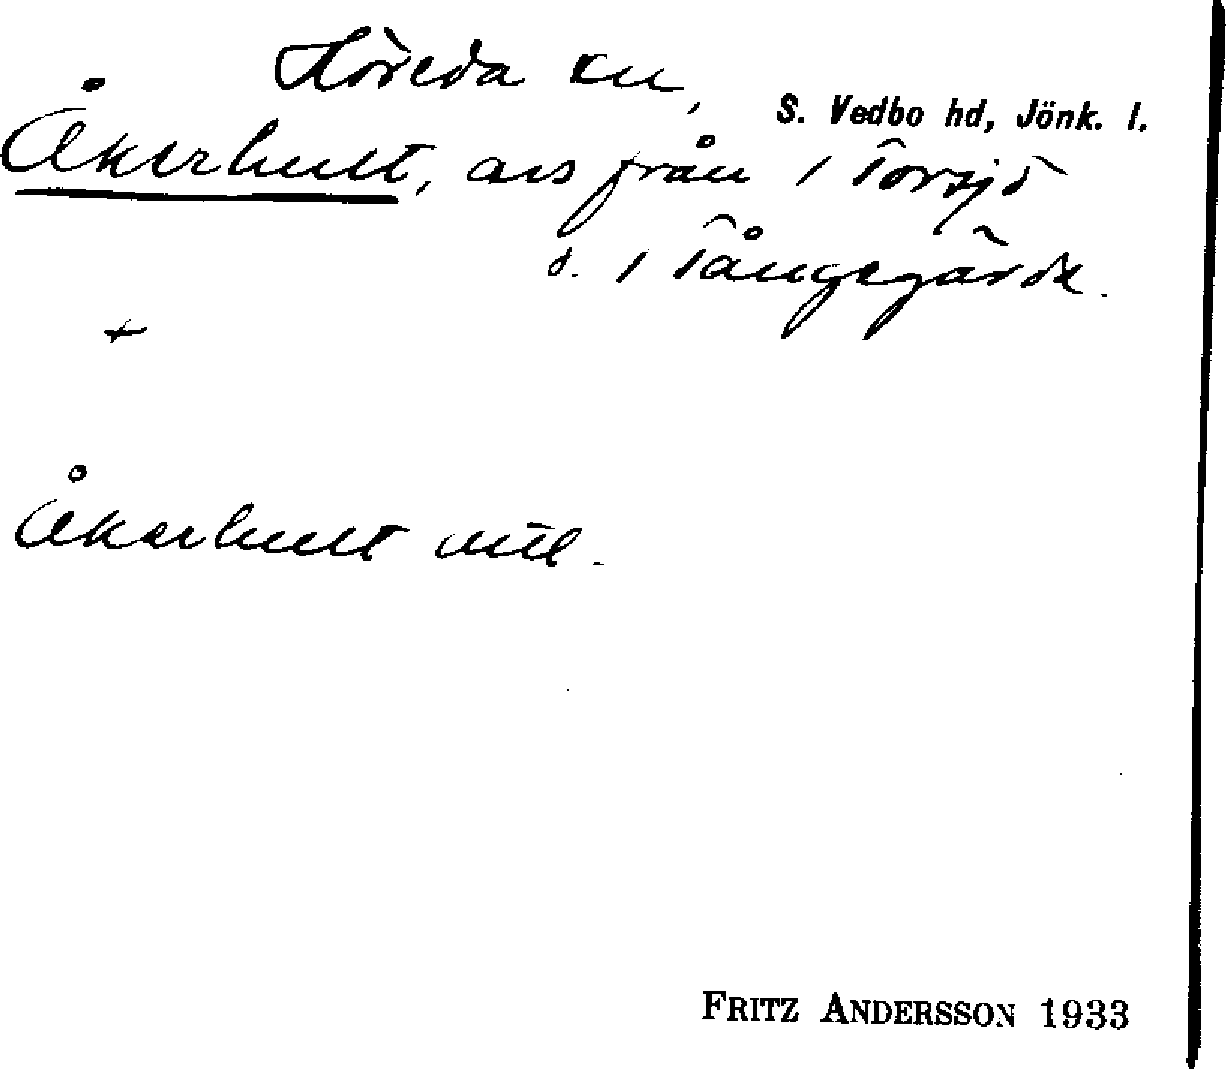 Höreda sn,
S. Vedbo hd, Jönk. l.
Åkerhult, avs från 1 Torsjö
o. 1 Tångegärde.
+
Åkerhult
FRITZ ANDERSSON 1933